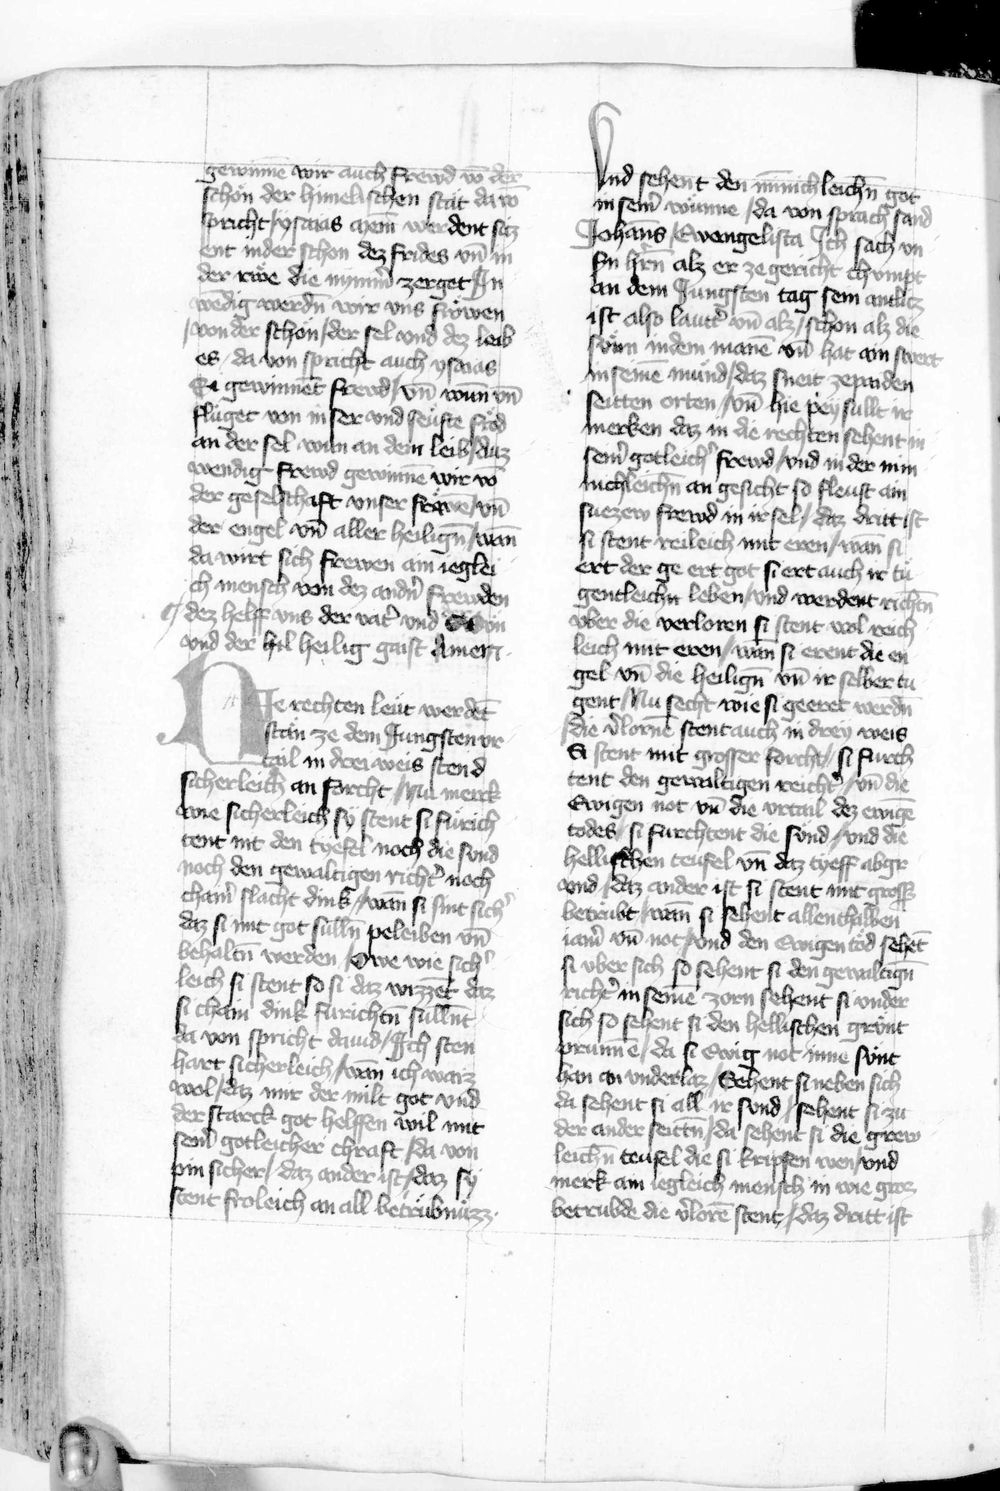 gewinnē wir auch frewd vō der
schön der himelischen stat da vō
spricht / ysaias ainem werdent sitz
ent in der schon dez frides vn̄ in
der rŵe die nimm̄ zerget In
wēdig werdn̄ wir vns frowen
/ von der schon / der sel vnd dez leib
es / da von spricht auch ysaias
Si gewinnēt frewd / vn̄ wun̄ vn̄
fluget von in ser vnd seufte frōd
an der sel wun̄ an dem leib / auz
wendig frewd gewinnē wir vō
der geselschaft vnser frāwē / vn̄
der engel vn̄ aller heilign̄ / wan̄
da wirt sich frewen ain ieglei
ch mensch von dez andn̄ frewden
dez helff vns der vat͛ vnd der sun
vnd der hil heilig gaist Amen.
Die rechten leüt werdēt
stān ze dem Jungsten vr
tail in drei weis stend
sicherleich an forcht / Nu merck
wie sicherleich sy stent si fürich
tent nit den tyefel noch die sund
noch den gewaltigen richt͛ noch
cham͛ slacht dink / wān si sint sich͛
daz si mit got sulln̄ peleiben vn̄
behaltn̄ werden / Owe wie sich͛
leich si stent so si daz wizzet daz
si chain dink furichtn̄ sullnt
da von spricht dauid / Ich sten
hart sicherleich / wān ich waiz
wol / daz mir der milt got vnd
der starck got helffen wil mit
sem͛ gotleicher chraft / da von
pin sicher / daz ander ist / daz sy
stent froleich an all betrübnüzz.
Vnd sehent den min̄ichleichn̄ got
in sem͛ wunne / da von sprach sand
Johans / Ewengelista Ich sach vn
sn̄ hrn̄ alz er ze gericht chvmpt
an dem Jungsten tag sein antlitz
ist also lautt͛ vn̄ alz / schon alz die
sun̄ in dem manē vn̄ hat ain swert
in seine mund / daz sneit ze paiden
seitten orten / vn̄ hie pey sullt ir
merken daz in die rechten sehent in
sem͛ gotleich͛ frewd / vnd in der min
nichleichn̄ an gesicht so fleust ain
suezew frewd in ir sel / daz dritt ist
si stent reileich mit eren / wān si
ert der ge ert got si ert auch ir tu
gentleichn̄ leben / vnd werdent richtn̄
vber die verloren si stent wol reich
leich mit eren / wān si erent die en
gel vn̄ die heilign̄ vn̄ ir selber tu
gent / Nu secht wie si geeret werdn̄
/ die v͛lornē stent auch in drey weis
Si stent mit grosser forcht / si furch
tent den gewaltigen reicht͛ / vn̄ die
Ewigen not vn̄ die vrtail dez ewigē
todes / si furchtent die sund / vnd die
hellischen teufel vn̄ daz tyeff abgr
vnd / daz ander ist si stent mit gross͛
betrubt / wan̄ si sehent allenthalben
iam͛ vn̄ not / vnd den Ewigen tod sehēt
si vber sich so sehent si den gewaltign̄
richt͛ in seine zorn sehent si vnder
sich so sehent si den hellischen grunt
prunnē / da si Ewig not inne sunt
han an vnderlaz / Sehent si neben sich
da sehent si all ir sund / sehent si zu
der ander seittn̄ / da sehent si die grew
leichn̄ teufel die si kripfen wen / vnd
merk ain iegleich mensch in wie groz
betrubde die v͛lorē stent / daz dritt ist